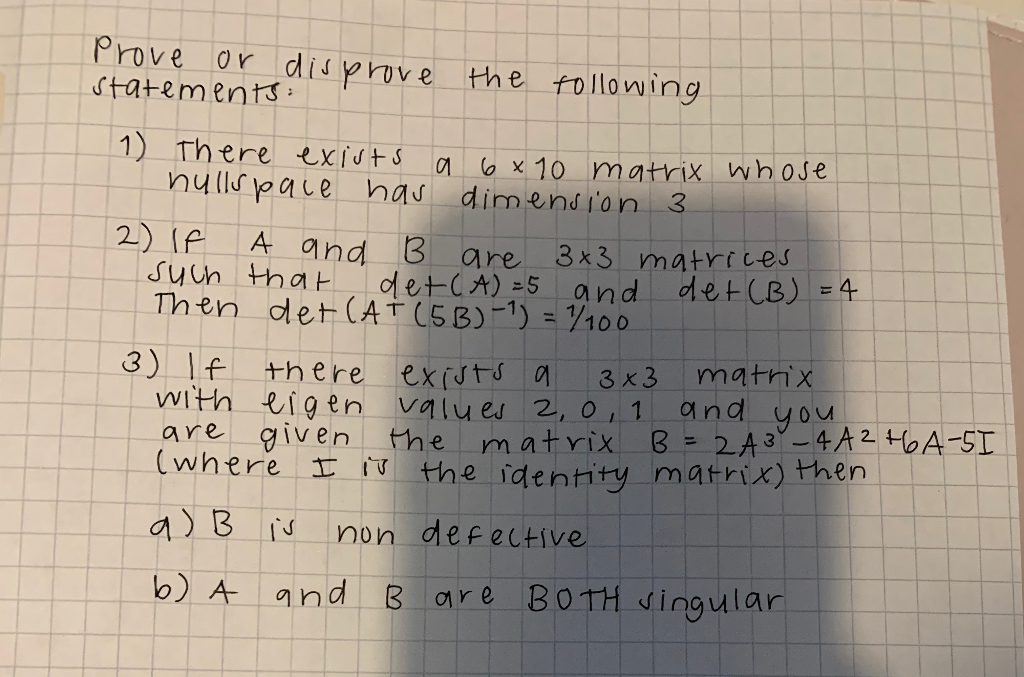 Prove or disprove the following
statements:
1) There exists a 6 x 10 matrix whose
nullspace has dimension 3
2) If A and B are 3x3 matrices
such that det(A)=5 and det(B) = 4
Then det(A^T(5B)^-1) = 1/100
3) If there exists a 3x3 matrix
with eigen values 2, 0, 1 and you
are given the matrix B = 2A^3 - 4A^2 + 6A - 5I
(where I is the identity matrix) then
a) B is non defective
b) A and B are BOTH singular